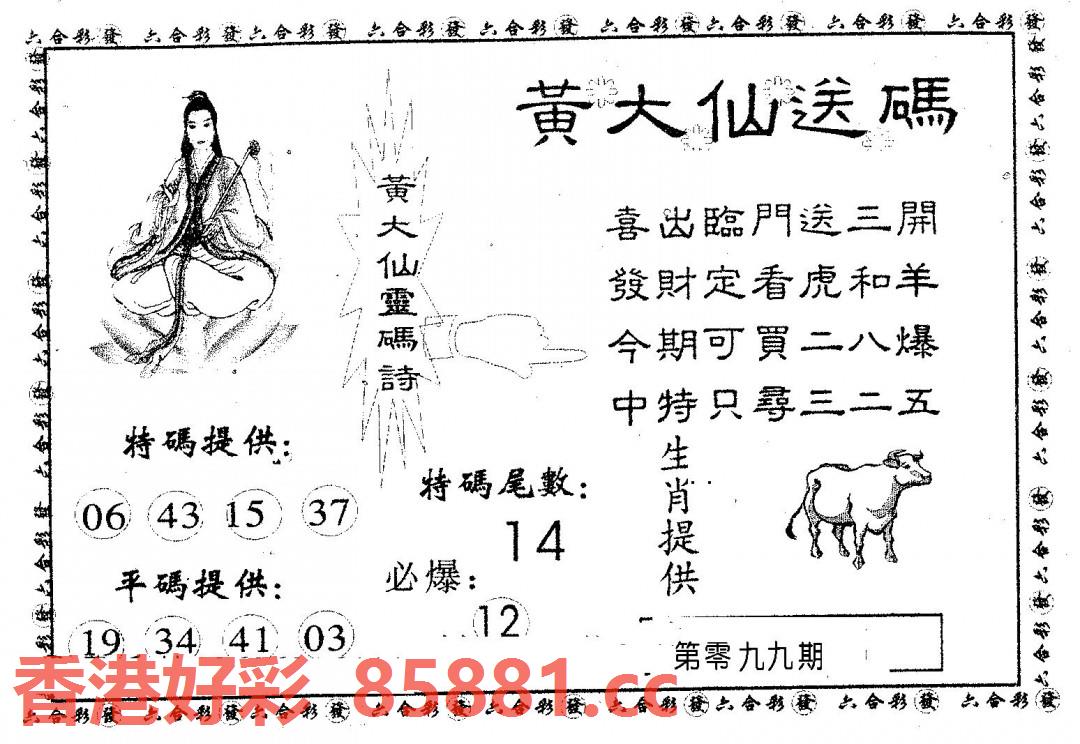 六合彩發 六合彩發 六合彩發 六合彩發 六合彩發 六合彩發 六合彩發 六合彩發 六合彩發
黃大仙送碼
黃大仙靈碼詩
喜出臨門送三開
發財定看虎和羊
今期可買二八爆
中特只尋三二五
特碼提供:
06 43 15 37
特碼尾數:
14
生肖提供
平碼提供:
19 34 41 03
必爆:
12
第零九九期
香港好彩 85881.cc
六合彩發 六合彩發 六合彩發 六合彩發 六合彩發 六合彩發 六合彩發 六合彩發 六合彩發